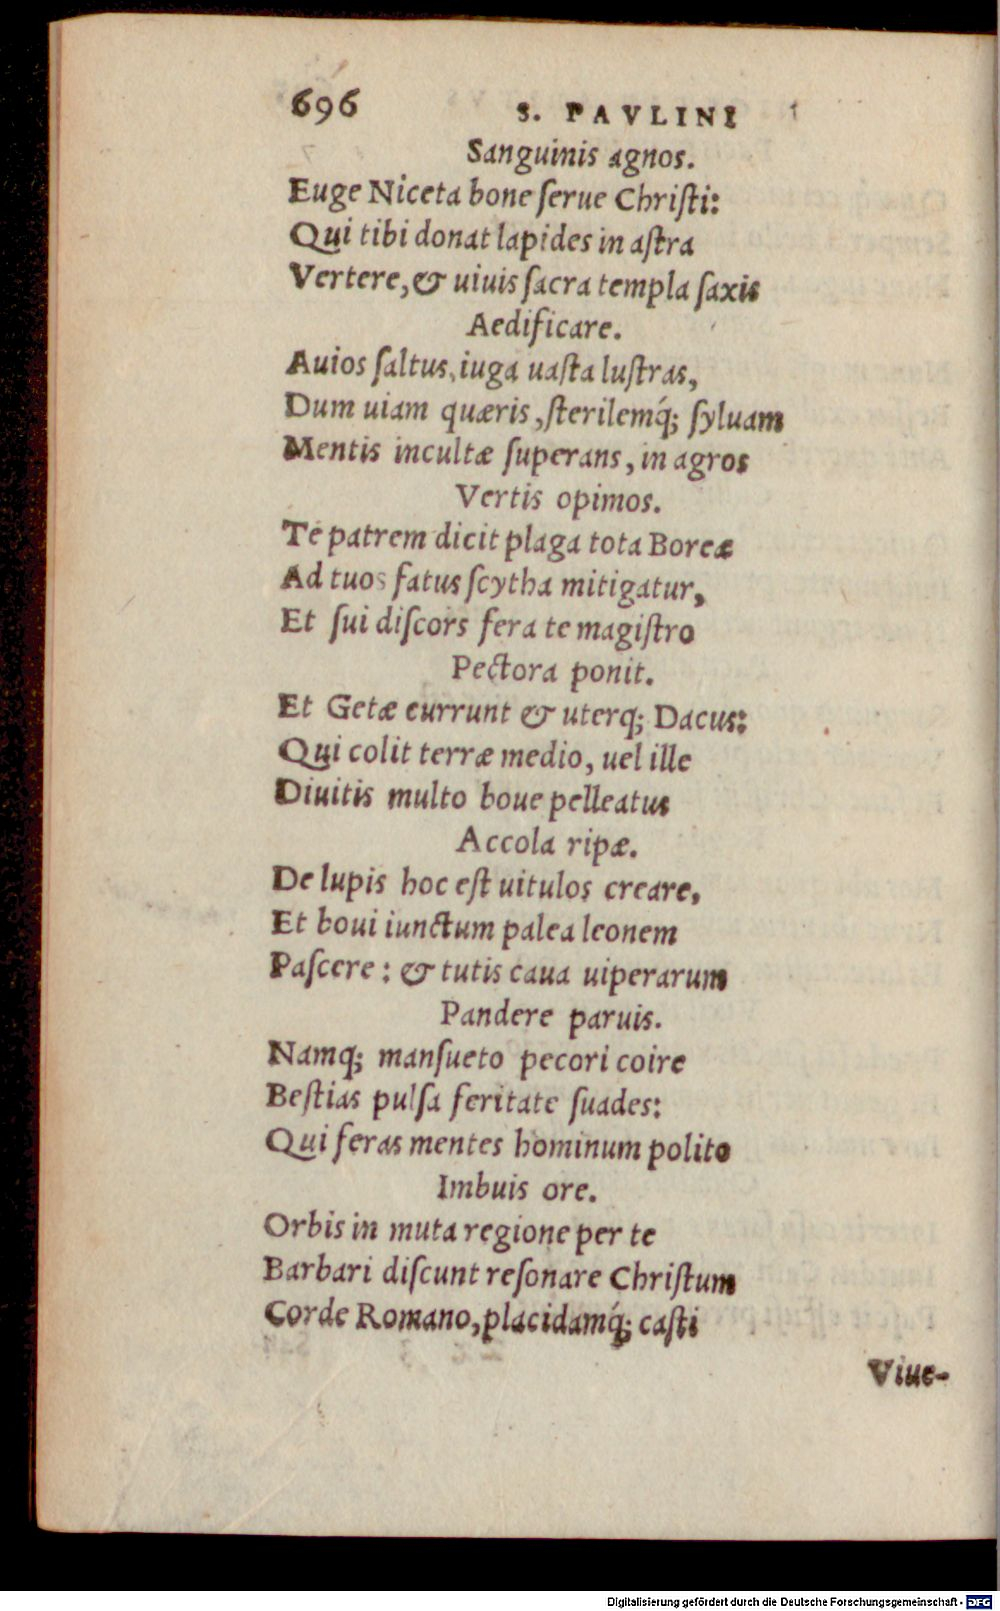 696 S. PAVLINI
Sanguinis agnos.
Euge Niceta bone ſerue Chriſti:
Qui tibi donat lapides in aſtra
Vertere, & uiuis ſacra templa ſaxis
Aedificare.
Auios ſaltus, iuga uaſta luſtras,
Dum uiam quæris, ſterilemq́; ſyluam
Mentis incultæ ſuperans, in agros
Vertis opimos.
Te patrem dicit plaga tota Boreæ
Ad tuos fatus ſcytha mitigatur,
Et ſui diſcors fera te magiſtro
Pectora ponit.
Et Getæ currunt & uterq; Dacus:
Qui colit terræ medio, uel ille
Diuitis multo boue pelleatus
Accola ripæ.
De lupis hoc eſt uitulos creare,
Et boui iunctum palea leonem
Paſcere: & tutis caua uiperarum
Pandere paruis.
Namq; manſueto pecori coire
Beſtias pulſa feritate ſuades:
Qui feras mentes hominum polito
Imbuis ore.
Orbis in muta regione per te
Barbari diſcunt reſonare Chriſtum
Corde Romano, placidamq́; caſti
Viue-
Digitalisierung gefördert durch die Deutsche Forschungsgemeinschaft - DFG